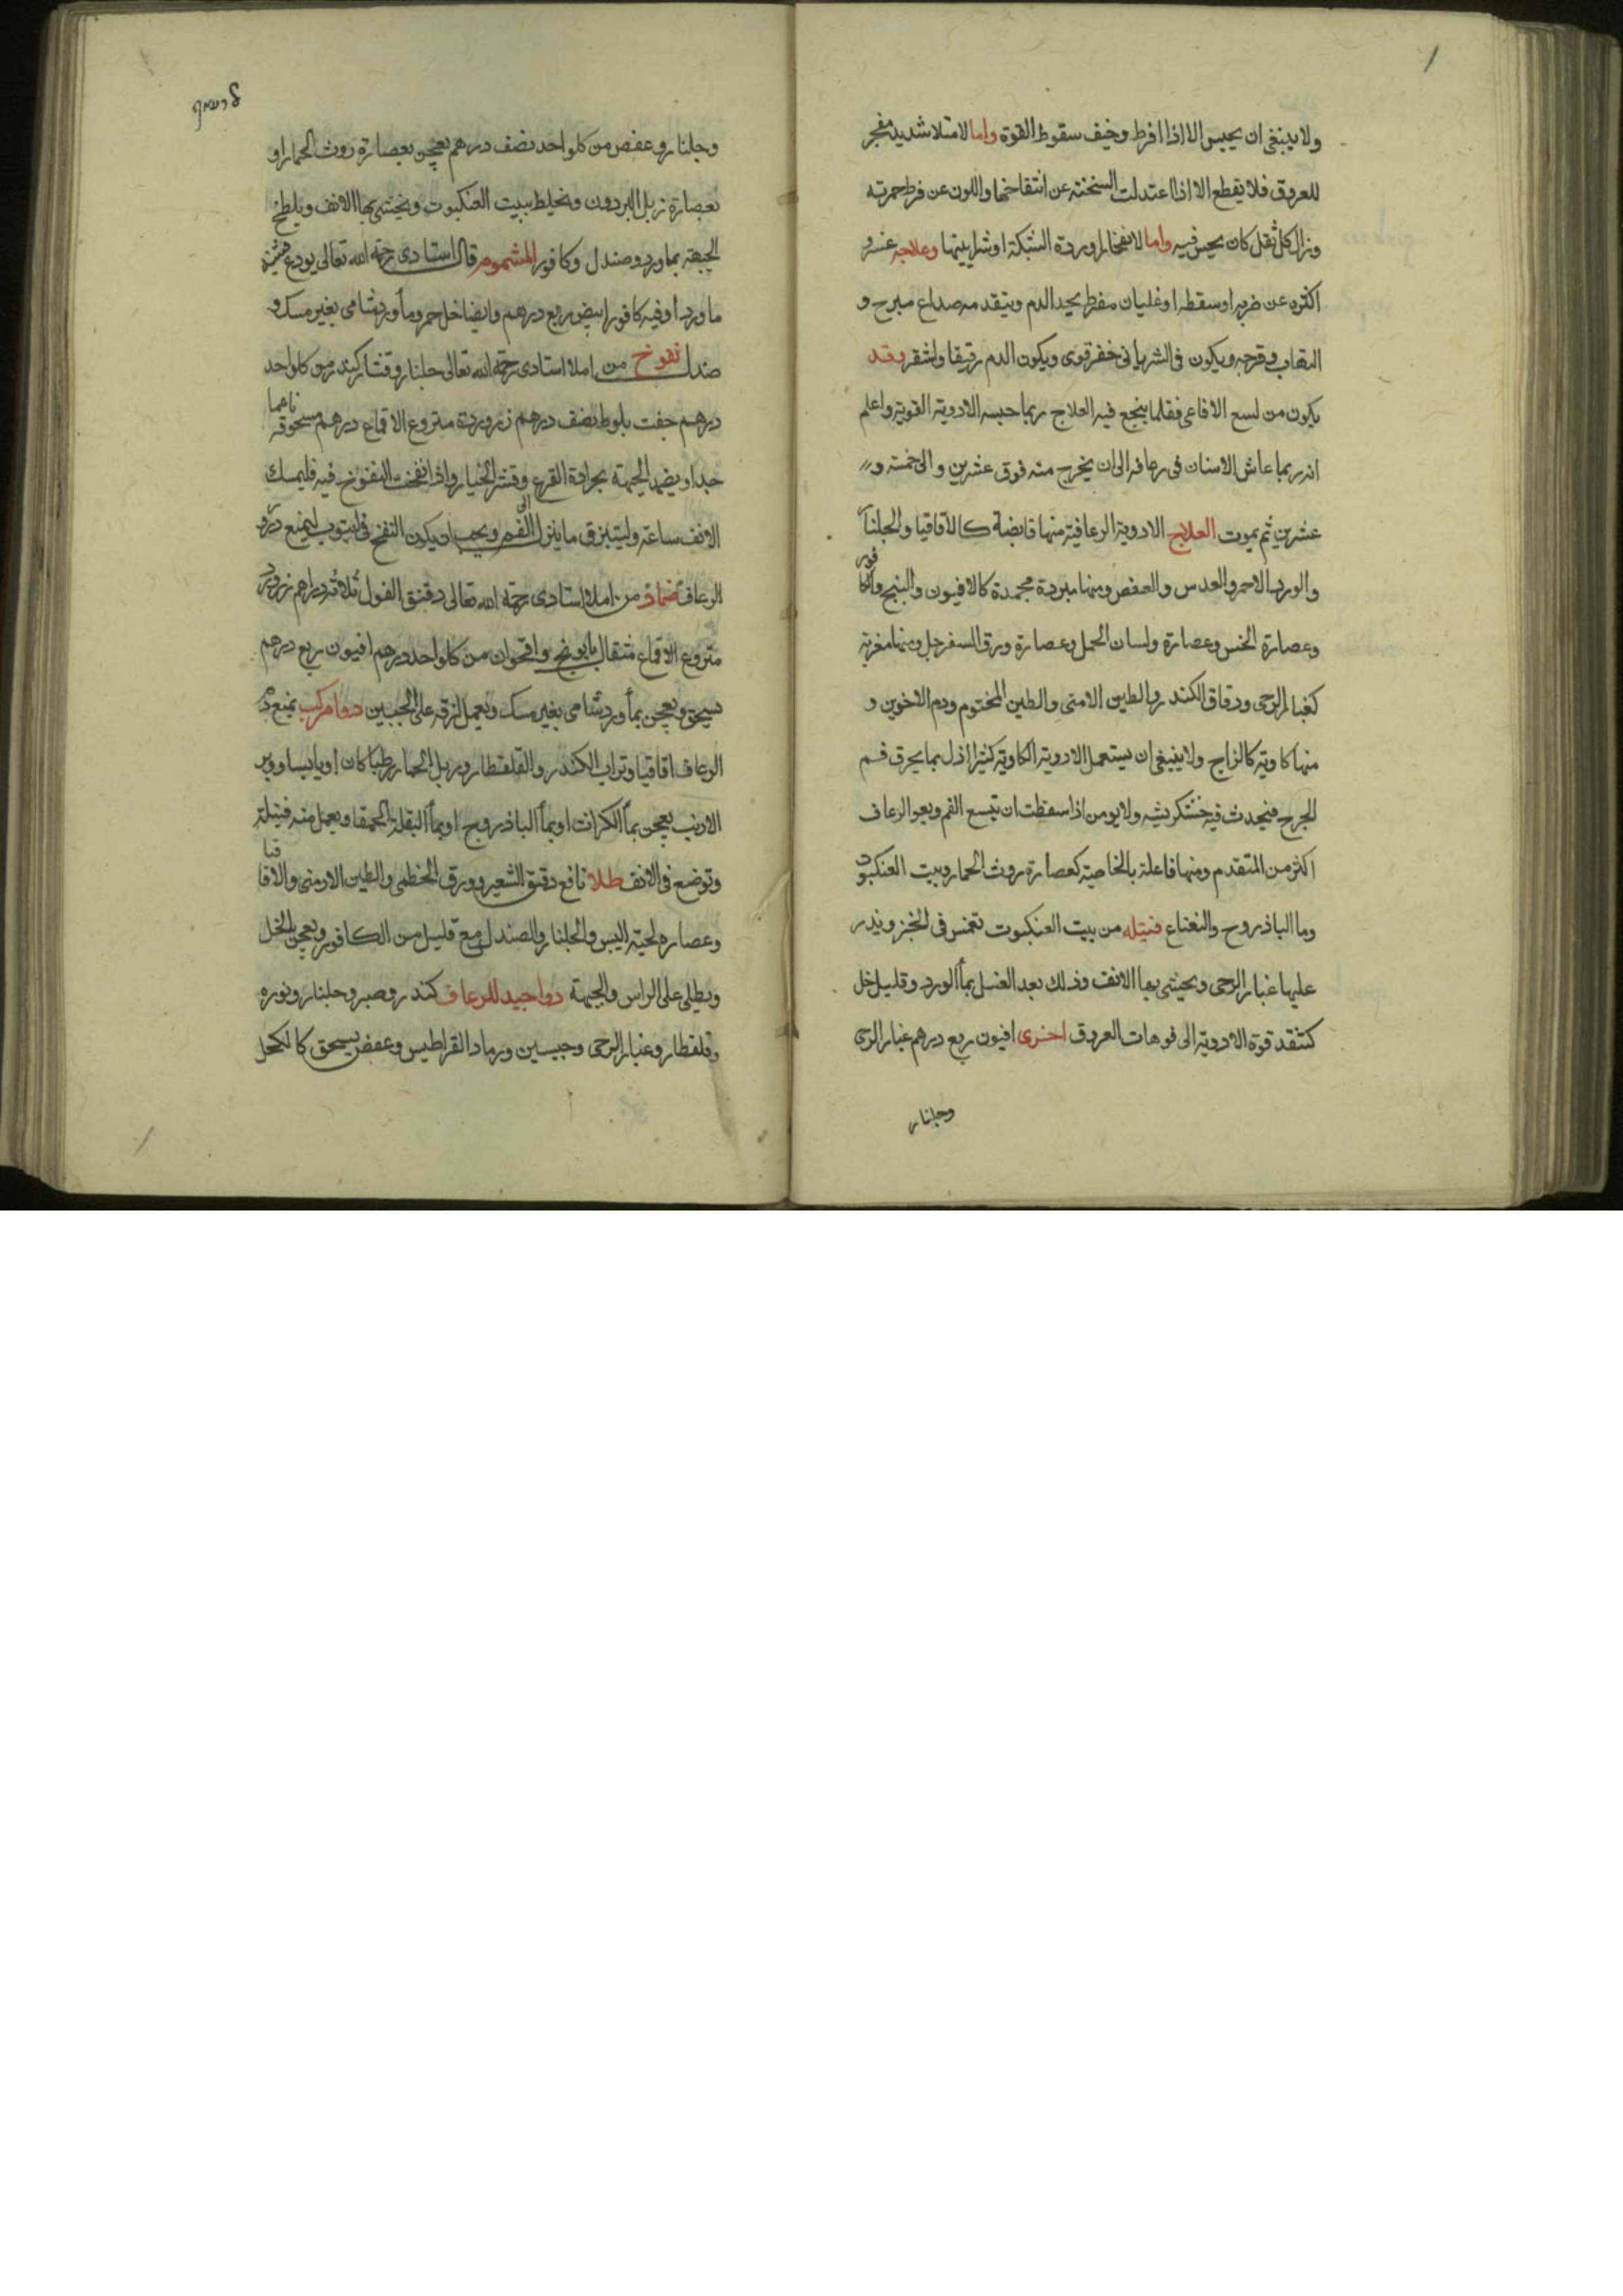 ولا ينبغي ان يحبس الا اذا افرط وخيف سقوط القوة واما لامتلا شديد مفجر
للعروق فلا يقطع الا اذا اعتدلت السخنة عن انتفاخها واللون عن فرط حمرته
وزال كل ثقل كان يحس فيه واما لانفجار اوردة الشبكة او شرايينها وعلاجه عسر و
اكثره عن ضربه او سقطه او غليان مفرط يحد الدم ويتقدمه صداع مبرح و
التهاب وقرحه ويكون في الشرياني حفز قوي ويكون الدم رقيقا واشقر وقد
يكون من لسع الافاعي فقلما ينجع فيه العلاج ربما حبسه الادوية القوية واعلم
انه ربما عاش الانسان في رعافه الى ان يخرج منه فوق عشرين والى خمسة و
عشرين ثم يموت العلاج الادوية الرعافية منها قابضة كالاقاقيا والجلنار
والورد الاحمر والعدس والعفص ومنها مبردة مجمدة كالافيون والبنج والكافور
وعصارة الخس وعصارة ولسان الحمل وعصارة ورق السفرجل ومنها مغرية
كغبار الرحى ودقاق الكندر والطين الامني والطين المختوم ودم الاخوين و
منها كاوية كالزاج ولا ينبغي ان يستعمل الادوية الكاوية كثيرا اذ ربما يحرق فم
الجرح فيحدث فيه خشكريشه ولا يومن اذا سقطت ان تتسع الفم ويعود الرعاف
اكثر من المتقدم ومنها فاعلة بالخاصية كعصارة روث الحمار وبيت العنكبوت
وما الباذروج والنعناع فتيله من بيت العنكبوت تغمس في الحبر ويذر
عليها غبار الرحى ويحشى بها الانف وذلك بعد الغسل بماء الورد وقليل خل
كتنفد قوة الادوية الى فوهات العروق اخرى افيون ربع درهم غبار الرحى
وجلنار
وجلنار وعفص من كلو احد نصف درهم يعجن بعصارة روث الحمار او
بعصارة زبل البردون ويخلط ببيت العنكبوت ويحشى بها الانف ويلطخ
الجبهة بماورد وصندل وكافور المشموم قال استادى رحمة الله تعالى يودع قنينة
ماورد اوقيه كافور ابيض ربع درهم وايضا خل خمر وماورد شامى بغير مسك و
صندل نفوخ من املا استادى رحمة الله تعالى جلنار وقشار كندر من كلو احد
درهم جفت بلوط نصف درهم زر وردة منزوع الاقماع درهم مسحوقه ناعما
جدا ويضمد الجبهة بجرادة القرع وقشر الخيار واذا نفخت النفوخ فيه فليمسك
الانف ساعة وليتبزق ما ينزل الى الفم ويجب ان يكون النفخ في انبوب ليمنع درور
الرعاف ضماد من املا استادى رحمة الله تعالى دقيق الفول ثلاثة دراهم زر ورد
منزوع الاقماع مثقال بابونج واقحوان من كلو احد درهم افيون ربع درهم
يسحق ويعجن بماورد شامى بغير مسك ويعمل لزقه على الجبين دوا مركب يمنع درور
الرعاف اقاقيا وتراب الكندر والقلقطار وزبل الحمار رطبا كان او يابسا ووبر
الارنب يعجن بماء الكراث او بماء الباذروج او بماء البقلة الحمقا ويعمل منه فتيلة
وتوضع في الانف طلا نافع دقيق الشعير وورق الخطمي والطين الارمني والاقاقيا
وعصاره لحية التيس والجلنار والصندل مع قليل من الكافور ويعجن بالخل
ويطلى على الراس والجبهة دوا جيد للرعاف كندر وصبر وجلنار ونوره
وقلقطار وغبار الرحى وجبسين ورماد القراطيس وعفص يسحق كالكحل